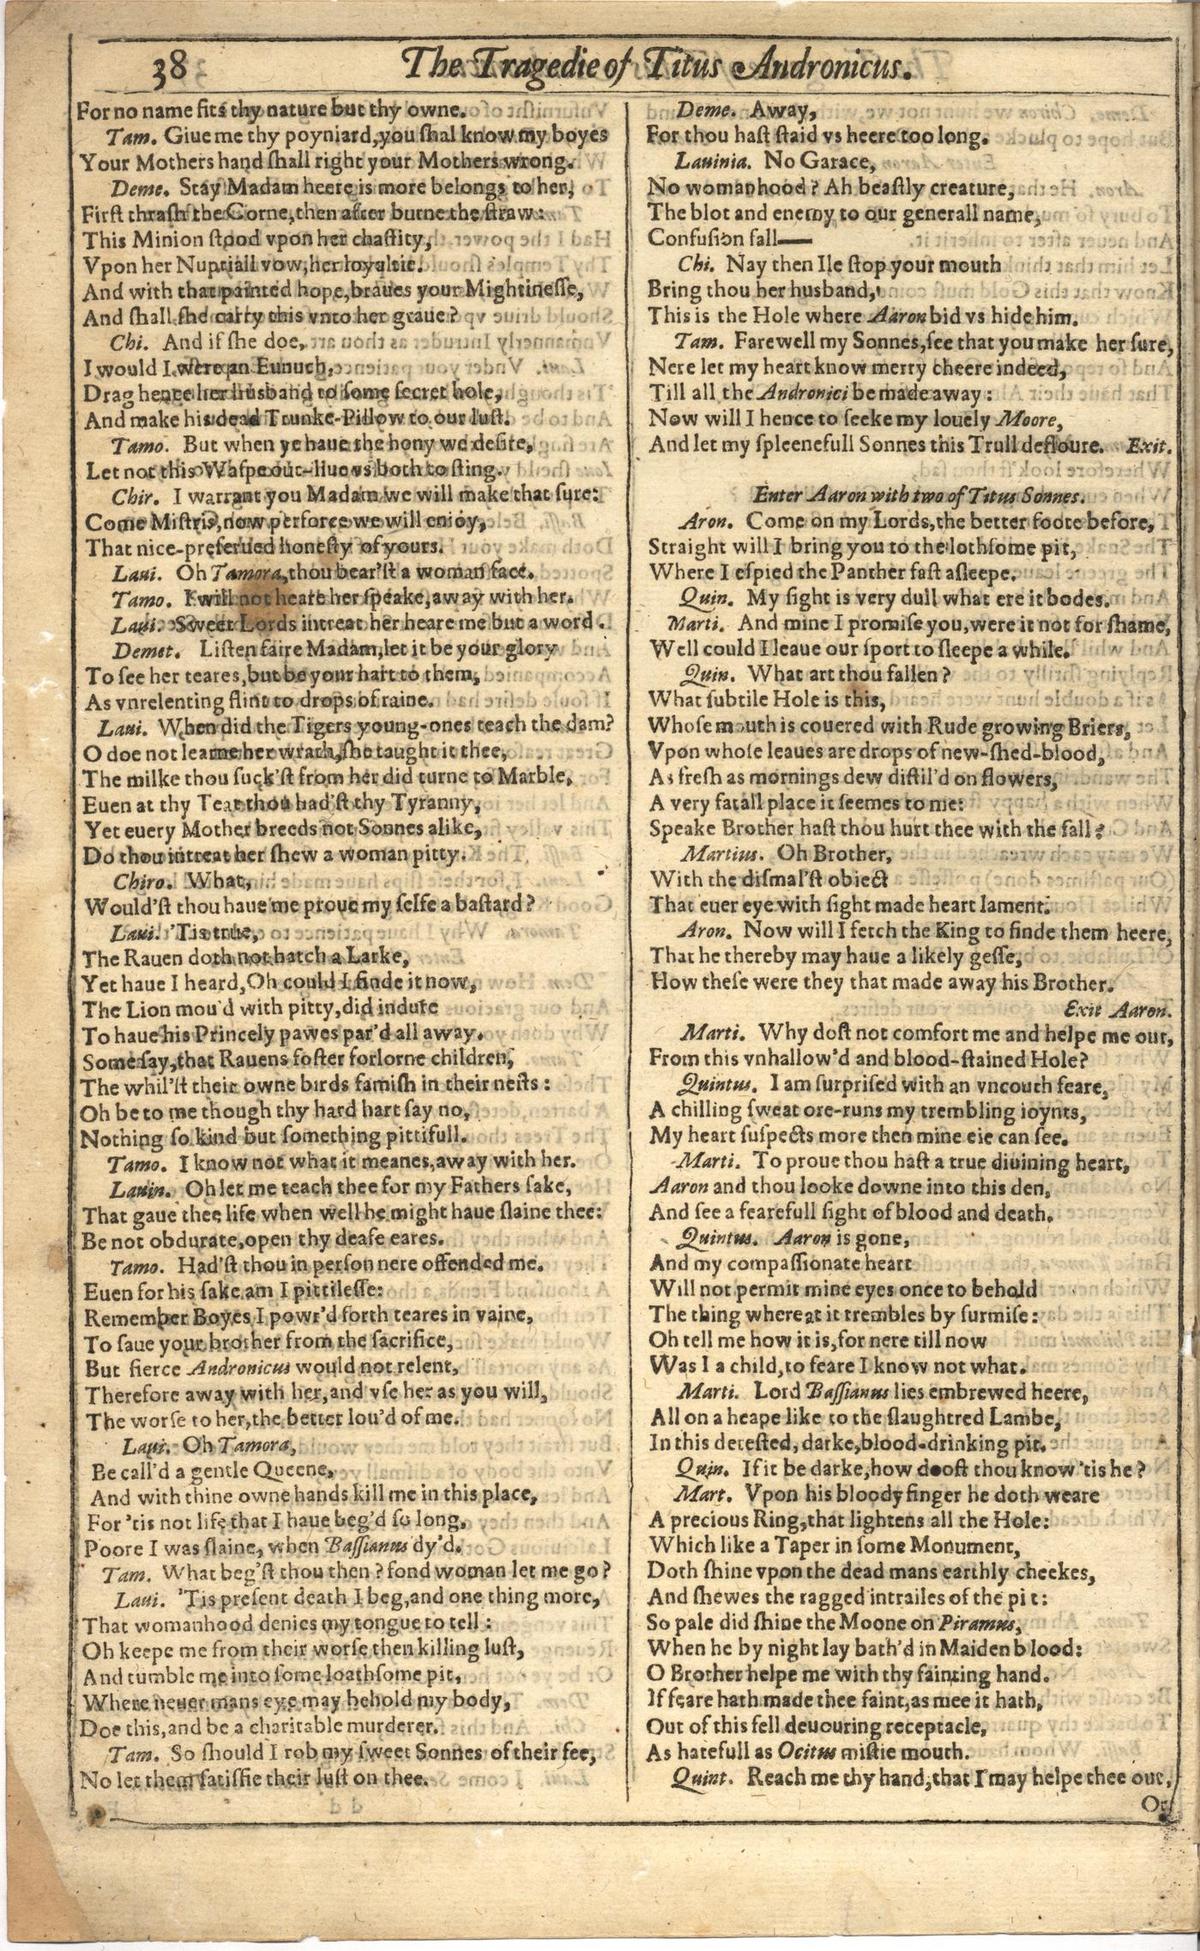 38
The Tragedie of Titus Andronicus.
For no name fits thy nature but thy owne.
Tam. Giue me thy poyniard, you shal know my boyes
Your Mothers hand shall right your Mothers wrong.
Deme. Stay Madam heere is more belongs to her,
First thrash the Corne, then after burne the straw:
This Minion stood vpon her chastity,
Vpon her Nuptiall vow, her loyaltie.
And with that painted hope, braues your Mightinesse,
And shall she carry this vnto her graue?
Chi. And if she doe,
I would I were an Eunuch,
Drag hence her husband to some secret hole,
And make his dead Trunke-Pillow to our lust.
Tamo. But when ye haue the hony we desire,
Let not this Waspe out-liue vs both to sting.
Chir. I warrant you Madam we will make that sure:
Come Mistris, now perforce we will enioy,
That nice-preserued honesty of yours.
Laui. Oh Tamora, thou bear'st a woman face.
Tamo. I will not heare her speake, away with her.
Laui. Sweet Lords intreat her heare me but a word.
Demet. Listen faire Madam, let it be your glory
To see her teares, but be your hart to them,
As vnrelenting flint to drops of raine.
Laui. When did the Tigers young-ones teach the dam?
O doe not learne her wrath, she taught it thee,
The milke thou suck'st from her did turne to Marble,
Euen at thy Teat thou had'st thy Tyranny,
Yet euery Mother breeds not Sonnes alike,
Do thou intreat her shew a woman pitty.
Chiro. What,
Would'st thou haue me proue my selfe a bastard?
Laui. 'Tis true,
The Rauen doth not hatch a Larke,
Yet haue I heard, Oh could I finde it now,
The Lion mou'd with pitty, did indure
To haue his Princely pawes par'd all away.
Some say, that Rauens foster forlorne children,
The whil'st their owne birds famish in their nests:
Oh be to me though thy hard hart say no,
Nothing so kind but something pittifull.
Tamo. I know not what it meanes, away with her.
Lauin. Oh let me teach thee for my Fathers sake,
That gaue thee life when well he might haue slaine thee:
Be not obdurate, open thy deafe eares.
Tamo. Had'st thou in person nere offended me.
Euen for his sake am I pittilesse:
Remember Boyes I powr'd forth teares in vaine,
To saue your brother from the sacrifice,
But fierce Andronicus would not relent,
Therefore away with her, and vse her as you will,
The worse to her, the better lou'd of me.
Laui. Oh Tamora,
Be call'd a gentle Queene,
And with thine owne hands kill me in this place,
For 'tis not life that I haue beg'd so long,
Poore I was slaine, when Bassianus dy'd.
Tam. What beg'st thou then? fond woman let me go?
Laui. 'Tis present death I beg, and one thing more,
That womanhood denies my tongue to tell:
Oh keepe me from their worse then killing lust,
And tumble me into some loathsome pit,
Where neuer mans eye may behold my body,
Doe this, and be a charitable murderer.
Tam. So should I rob my sweet Sonnes of their fee,
No let them satisfie their lust on thee.
Deme. Away,
For thou hast staid vs heere too long.
Lauinia. No Garace,
No womanhood? Ah beastly creature,
The blot and enemy to our generall name,
Confusion fall——
Chi. Nay then Ile stop your mouth
Bring thou her husband,
This is the Hole where Aaron bid vs hide him.
Tam. Farewell my Sonnes, see that you make her sure,
Nere let my heart know merry cheere indeed,
Till all the Andronici be made away:
Now will I hence to seeke my louely Moore,
And let my spleenefull Sonnes this Trull defloure. Exit.
Enter Aaron with two of Titus Sonnes.
Aron. Come on my Lords, the better foote before,
Straight will I bring you to the lothsome pit,
Where I espied the Panther fast asleepe.
Quin. My sight is very dull what ere it bodes.
Marti. And mine I promise you, were it not for shame,
Well could I leaue our sport to sleepe a while.
Quin. What art thou fallen?
What subtile Hole is this,
Whose mouth is couered with Rude growing Briers,
Vpon whose leaues are drops of new-shed-blood,
As fresh as mornings dew distil'd on flowers,
A very fatall place it seemes to me:
Speake Brother hast thou hurt thee with the fall?
Martius. Oh Brother,
With the dismal'st obiect
That euer eye with sight made heart lament.
Aron. Now will I fetch the King to finde them heere,
That he thereby may haue a likely gesse,
How these were they that made away his Brother.
Exit Aaron.
Marti. Why dost not comfort me and helpe me out,
From this vnhallow'd and blood-stained Hole?
Quintus. I am surprised with an vncouth feare,
A chilling sweat ore-runs my trembling ioynts,
My heart suspects more then mine eie can see.
Marti. To proue thou hast a true diuining heart,
Aaron and thou looke downe into this den,
And see a fearefull sight of blood and death.
Quintus. Aaron is gone,
And my compassionate heart
Will not permit mine eyes once to behold
The thing whereat it trembles by surmise:
Oh tell me how it is, for nere till now
Was I a child, to feare I know not what.
Marti. Lord Bassianus lies embrewed heere,
All on a heape like to the slaughtred Lambe,
In this detested, darke, blood-drinking pit.
Quin. If it be darke, how doost thou know 'tis he?
Mart. Vpon his bloody finger he doth weare
A precious Ring, that lightens all the Hole:
Which like a Taper in some Monument,
Doth shine vpon the dead mans earthly cheekes,
And shewes the ragged intrailes of the pit:
So pale did shine the Moone on Piramus,
When he by night lay bath'd in Maiden blood:
O Brother helpe me with thy fainting hand.
If feare hath made thee faint, as mee it hath,
Out of this fell deuouring receptacle,
As hatefull as Ocitus mistie mouth.
Quint. Reach me thy hand, that I may helpe thee out,
Or